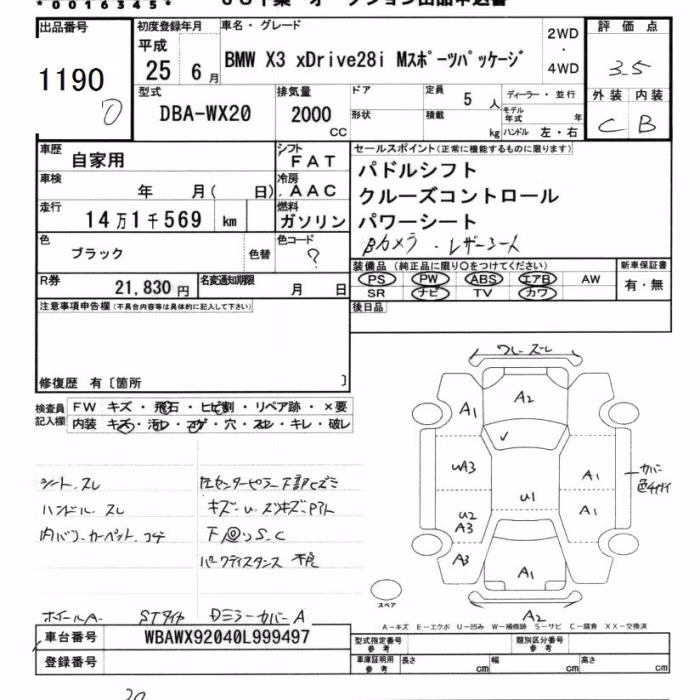 *0016345*
出品番号
1190
初度登録年月
平成
25 6月
車名・グレード
BMW X3 xDrive28i Mスポーツパッケージ
2WD
・
4WD
評価点
3.5
外装 内装
C B
型式
DBA-WX20
排気量
2000
cc
ドア
形状
定員
5 人
積載
kg
ディーラー・並行
モデル年式 年
ハンドル 左・右
車歴
自家用
シフト
FAT
車検
年 月( 日)
冷房
AAC
走行
14万1千569 km
燃料
ガソリン
色
ブラック
色替
色コード
?
R券
21,830円
名変通知期限
月 日
セールスポイント(正常に機能するものに限ります)
パドルシフト
クルーズコントロール
パワーシート
Bカメラ・レザーシート
装備品(純正品に限り○をつけてください)
PS PW ABS エアB AW
SR ナビ TV カワ
新車保証書
有・無
後日品
注意事項申告欄(不具合内容等は具体的に記入して下さい)
修復歴 有〔箇所 〕
検査員記入欄
FW キズ・飛石・ヒビ割・リペア跡・×要
内装 キズ・汚レ・コゲ・穴・スレ・キレ・破レ
シート、スレ
ハンドル、スレ
パークディスタンス 不良
ホイールA
STタイヤ
DミラーカバーA
ワレ・ズレ
A2
A1
✓
UA3
A1
U1
U2
A3
A1
A3
A1
A2
カバー
スペア
A-キズ E-エクボ U-凹み W-補修跡 S-サビ C-腐食 XX-交換済
車台番号
WBAWX92040L999497
登録番号
型式指定番号
参考
類別区分番号
参考
車庫証明用
参考
長さ cm
幅 cm
高さ cm